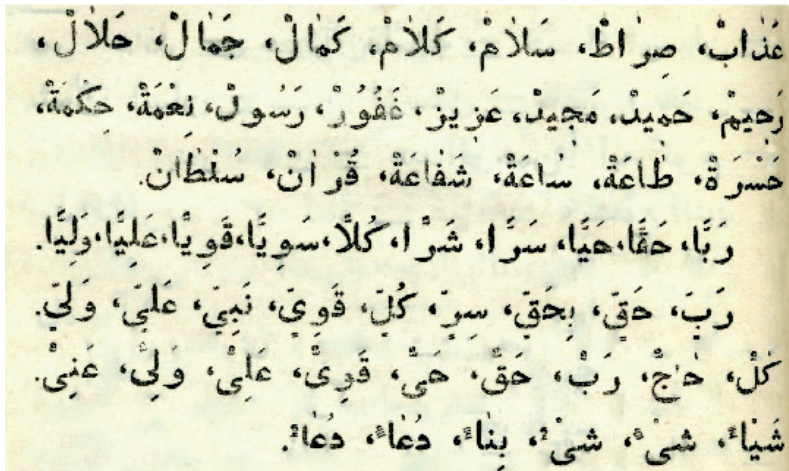 عَذَابٌ، صِرَاطٌ، سَلَامٌ، كَلَامٌ، كَمَالٌ، جَمَالٌ، حَلَالٌ،
رَحِيمٌ، حَمِيدٌ، مَجِيدٌ، عَزِيزٌ، غَفُورٌ، رَسُولٌ، نِعْمَةٌ، حِكْمَةٌ،
حَسْرَةٌ، طَاعَةٌ، سَاعَةٌ، شَفَاعَةٌ، قُرْاٰنٌ، سُلْطَانٌ.
رَبًّا، حَقًّا، حَيًّا، سَرًّا، شَرًّا، كُلًّا، سَوِيًّا، قَوِيًّا، عَلِيًّا، وَلِيًّا.
رَبٍّ، حَقٍّ، بِحَقٍّ، سِرٍّ، كُلٍّ، قَوِيٍّ، نَبِيٍّ، عَلِيٍّ، وَلِيٍّ.
كُلٌّ، حَاجٌّ، رَبٌّ، حَقٌّ، حَىٌّ، قَوِىٌّ، عَلِىٌّ، وَلِىٌّ، غَنِىٌّ.
شَيْاءً، شَىْءٍ، شَىْءٌ، بِنَاءً، دُعَاءً، دُعَاءٌ.